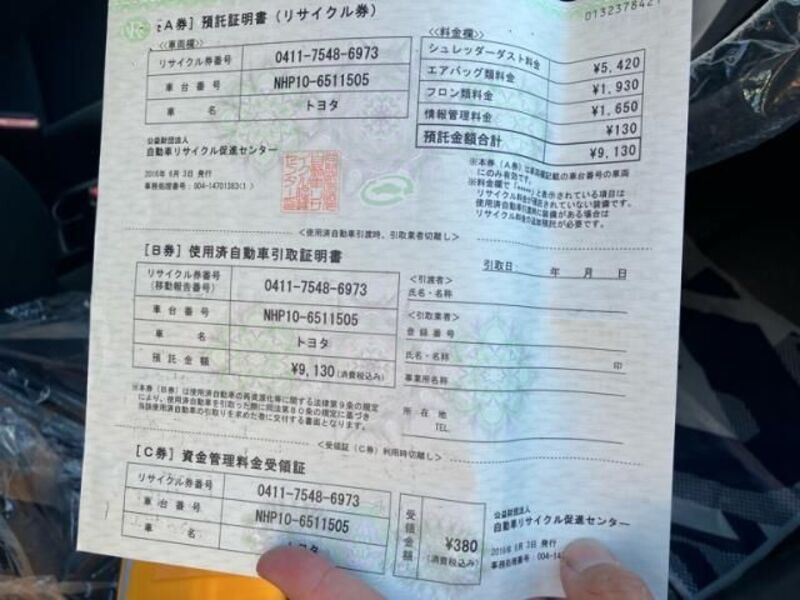 0132378421
[A券] 預託証明書 (リサイクル券)
<<車両欄>>
リサイクル券番号 0411-7548-6973
車台番号 NHP10-6511505
車名 トヨタ
<<料金欄>>
シュレッダーダスト料金 ¥5,420
エアバッグ類料金 ¥1,930
フロン類料金 ¥1,650
情報管理料金 ¥130
預託金額合計 ¥9,130
公益財団法人
自動車リサイクル促進センター
2016年 6月 3日 発行
事務処理番号:004-14701383(1 )
※本券(A券)は車両欄記載の車台番号の車両
にのみ有効です。
※料金欄で「*****」と表示されている項目は
リサイクル料金が預託されていない装備です。
使用済自動車引渡時に装備がある場合は
リサイクル料金の追加預託が必要です。
<使用済自動車引渡時、引取業者切離し>
[B券] 使用済自動車引取証明書
引取日: 年 月 日
リサイクル券番号
(移動報告番号) 0411-7548-6973
車台番号 NHP10-6511505
車名 トヨタ
預託金額 ¥9,130 (消費税込み)
<引渡者>
氏名・名称
<引取業者>
登録番号
氏名・名称 印
事業所名称
所在地
TEL
※本券(B券)は使用済自動車の再資源化等に関する法律第9条の規定
により、使用済自動車を引取った際に同法第80条の規定に基づき
当該使用済自動車の引取りを求めた者に交付する書面となります。
<受領証(C券)利用時切離し>
[C券] 資金管理料金受領証
リサイクル券番号 0411-7548-6973
車台番号 NHP10-6511505
車名 トヨタ
受領金額 ¥380
(消費税込み)
公益財団法人
自動車リサイクル促進センター
2016年 6月 3日 発行
事務処理番号:004-14